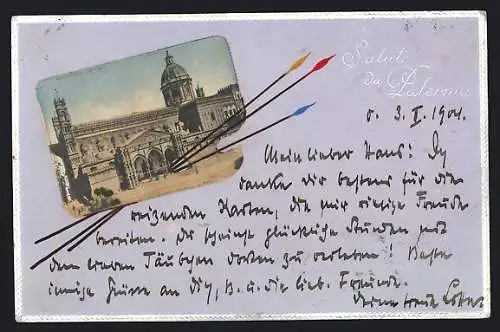 Saluti
da Palermo
d. 3. II. 1901.
Mein lieber Hans! Ich
danke dir bestens für die
reizenden Karten, die mir riesige Freude
bereiten. Du scheinst glückliche Stunden mit
dem lieben Täubchen dorten zu verleben! Beste
innige Grüsse an dich, u. a. die lieb. Freunde.